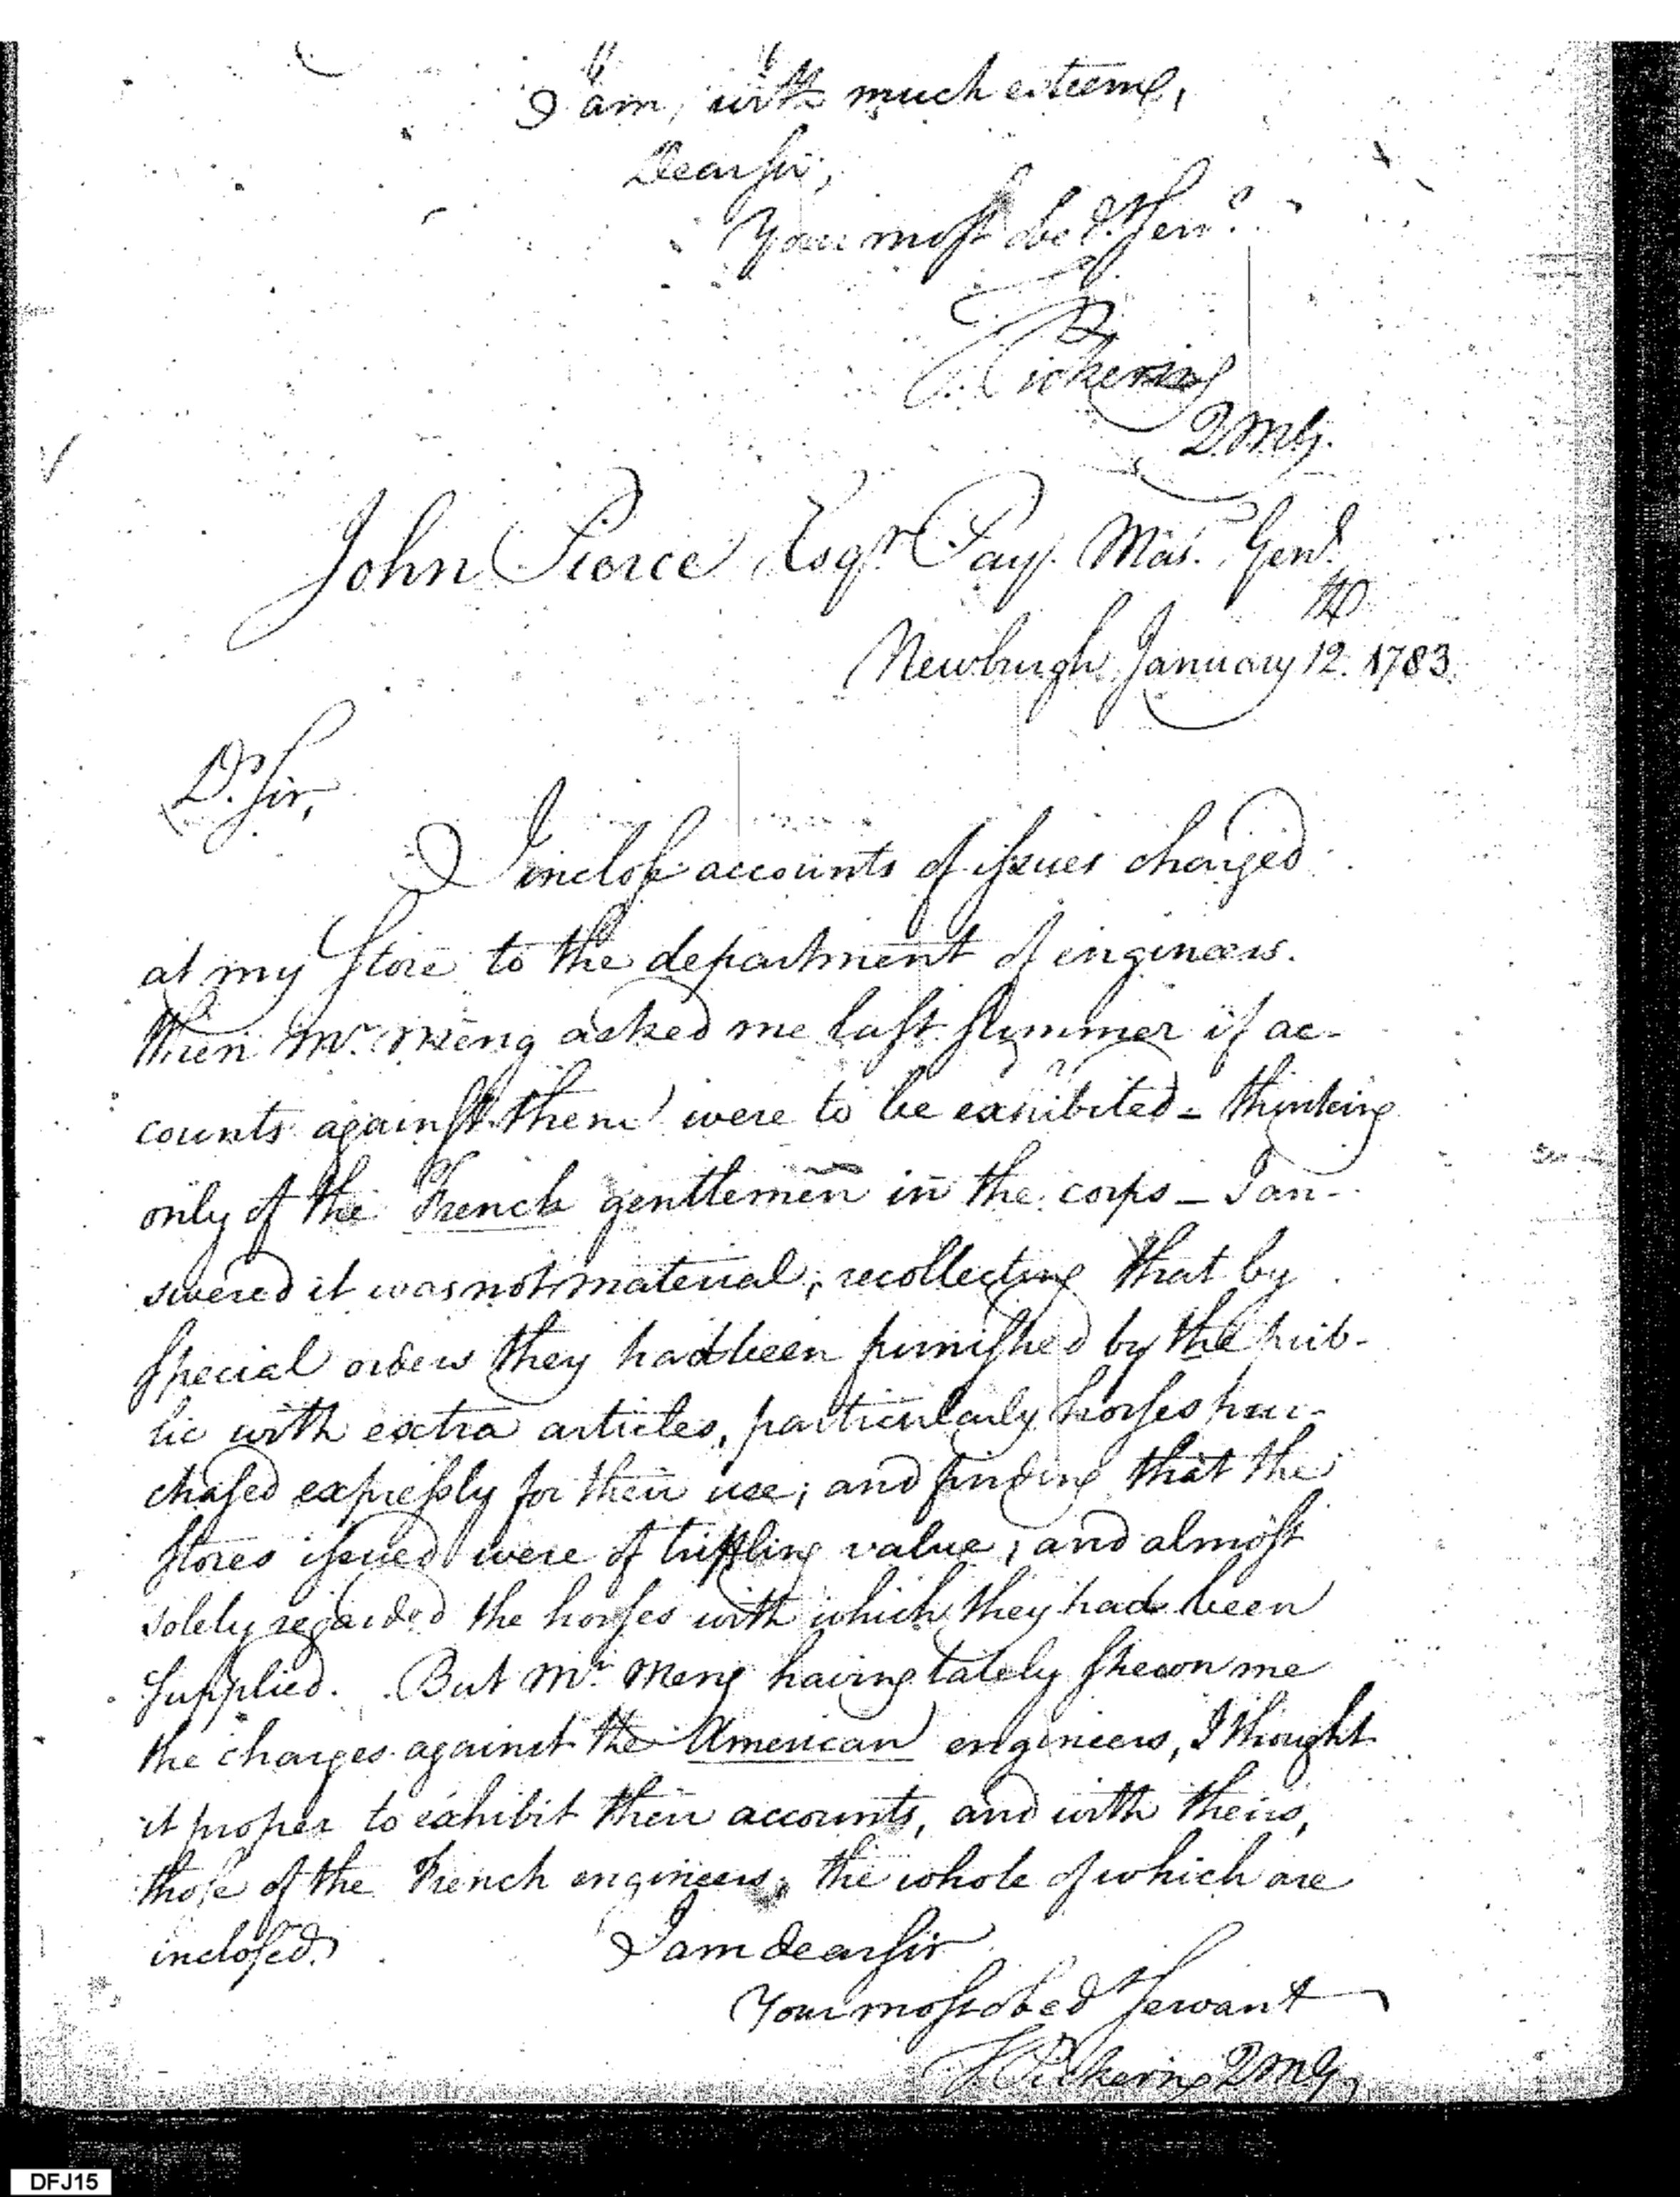 I am, with much esteem,
Dear sir,
Your most obed. serv.
T. Pickering
Q.M.G.
John Pierce Esqr. Pay. Mas. Genl.
Newburgh January 12. 1783.
Dr. sir,
I inclose accounts of issues charged
at my store to the department of engineers.
When Mr. Meng asked me last summer if ac-
counts against them were to be exhibited - thinking
only of the French gentlemen in the corps - I an-
swered it was not material; recollecting that by
special orders they had been furnished by the pub-
lic with extra articles, particularly horses pur-
chased expressly for their use; and finding that the
stores issued were of trifling value, and almost
solely regarded the horses with which they had been
supplied. But Mr. Meng having lately shewn me
the charges against the American engineers, I thought
it proper to exhibit their accounts, and with theirs,
those of the French engineers, the whole of which are
inclosed.
I am dear sir
Your most obed servant
T Pickering QMG
DFJ15